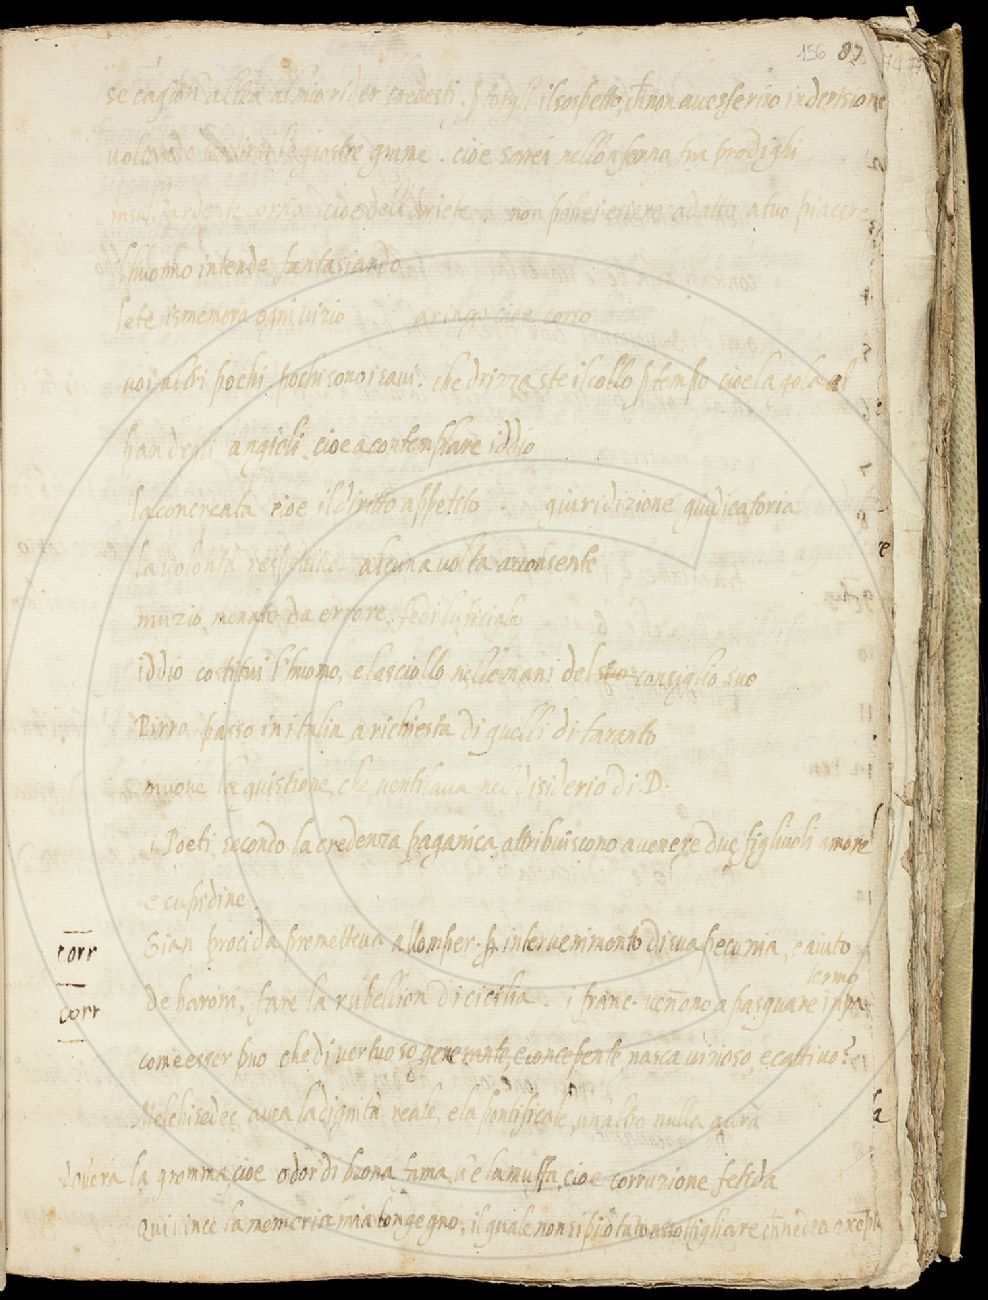 156 87
se cagion altra al mio rider credesti. p torgli il sospetto, ch non avesse riso in derisione
voltando giostre grame. cioe sarei nello inferno fra prodighi
ardente corna cioe dell Ariete, non potrei essere adatto a tuo piacere
l'huomo intende fantasiando
lete ismemora ogni vizio aringo cioe corso
voi altri pochi pochi sono i savi. che drizzaste il collo p tempo cioe la gola al
pan degli angioli cioe a contemplare iddio
la concreata cioe il diritto appetito giuridizione giudicatoria
la volonta respettiva alcuna volta acconsente
muzio, menato da errore,
iddio costitui l'huomo, e lasciollo nelle mani del suo consiglio suo
Pirro passo in italia a richiesta di quelli di taranto
muove la quistione, che ventilava nel disiderio di D.
i Poeti, secondo la credenza paganica, attribuiscono a venere due figliuoli amore
e cupidine.
corr Gian procida prometteva allomper. p intervenimento di sua pecunia, e aiuto
lermo
corr De baroni, fare la rubellion di cicilia. i franc. vennono a pasquare in pa
come esser puo che di vertuoso generante, e concepente, nasca vizioso, e cattivo?
Melchisedec avea la dignità reale, e la pontificale, un altro nulla avra
dov'era la gromma cioe odor di buona fama, v'è la muffa, cioe corruzione fetida
Qui vince la memoria mia lo ngegno, il quale non si può tanto assottigliare